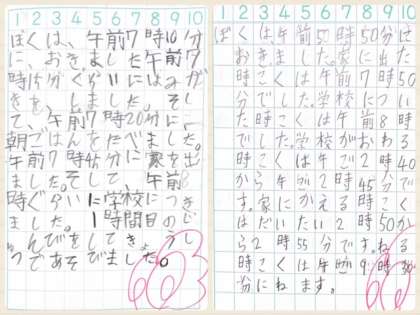 1 2 3 4 5 6 7 8 9 10
ぼくは、午前7時10分
に、おきました午前7
時15分ぐらいにはみが
きを、しました。そし
て、午前7時20分に
朝ごはんをたべました。
午前7時45分に家を出
ました。そして午前8
時ぐらいに学校につき
ました。1時間目のじ
ゅんびをしてきょうし
つであそびました。
663
1 2 3 4 5 6 7 8 9 10
ぼくは、午前5時50分に
おきました。家に出た
時こくは午前7時50
分でした。学校につい
た時こくは午前8時
でした。学校がおわる
時こくは午ご2時40
から午ご2時45分で
す。家にかえる時こく
はだいたい2時50か
ら2時55分です。ねる
時こくは午ご9時30
分にねます。